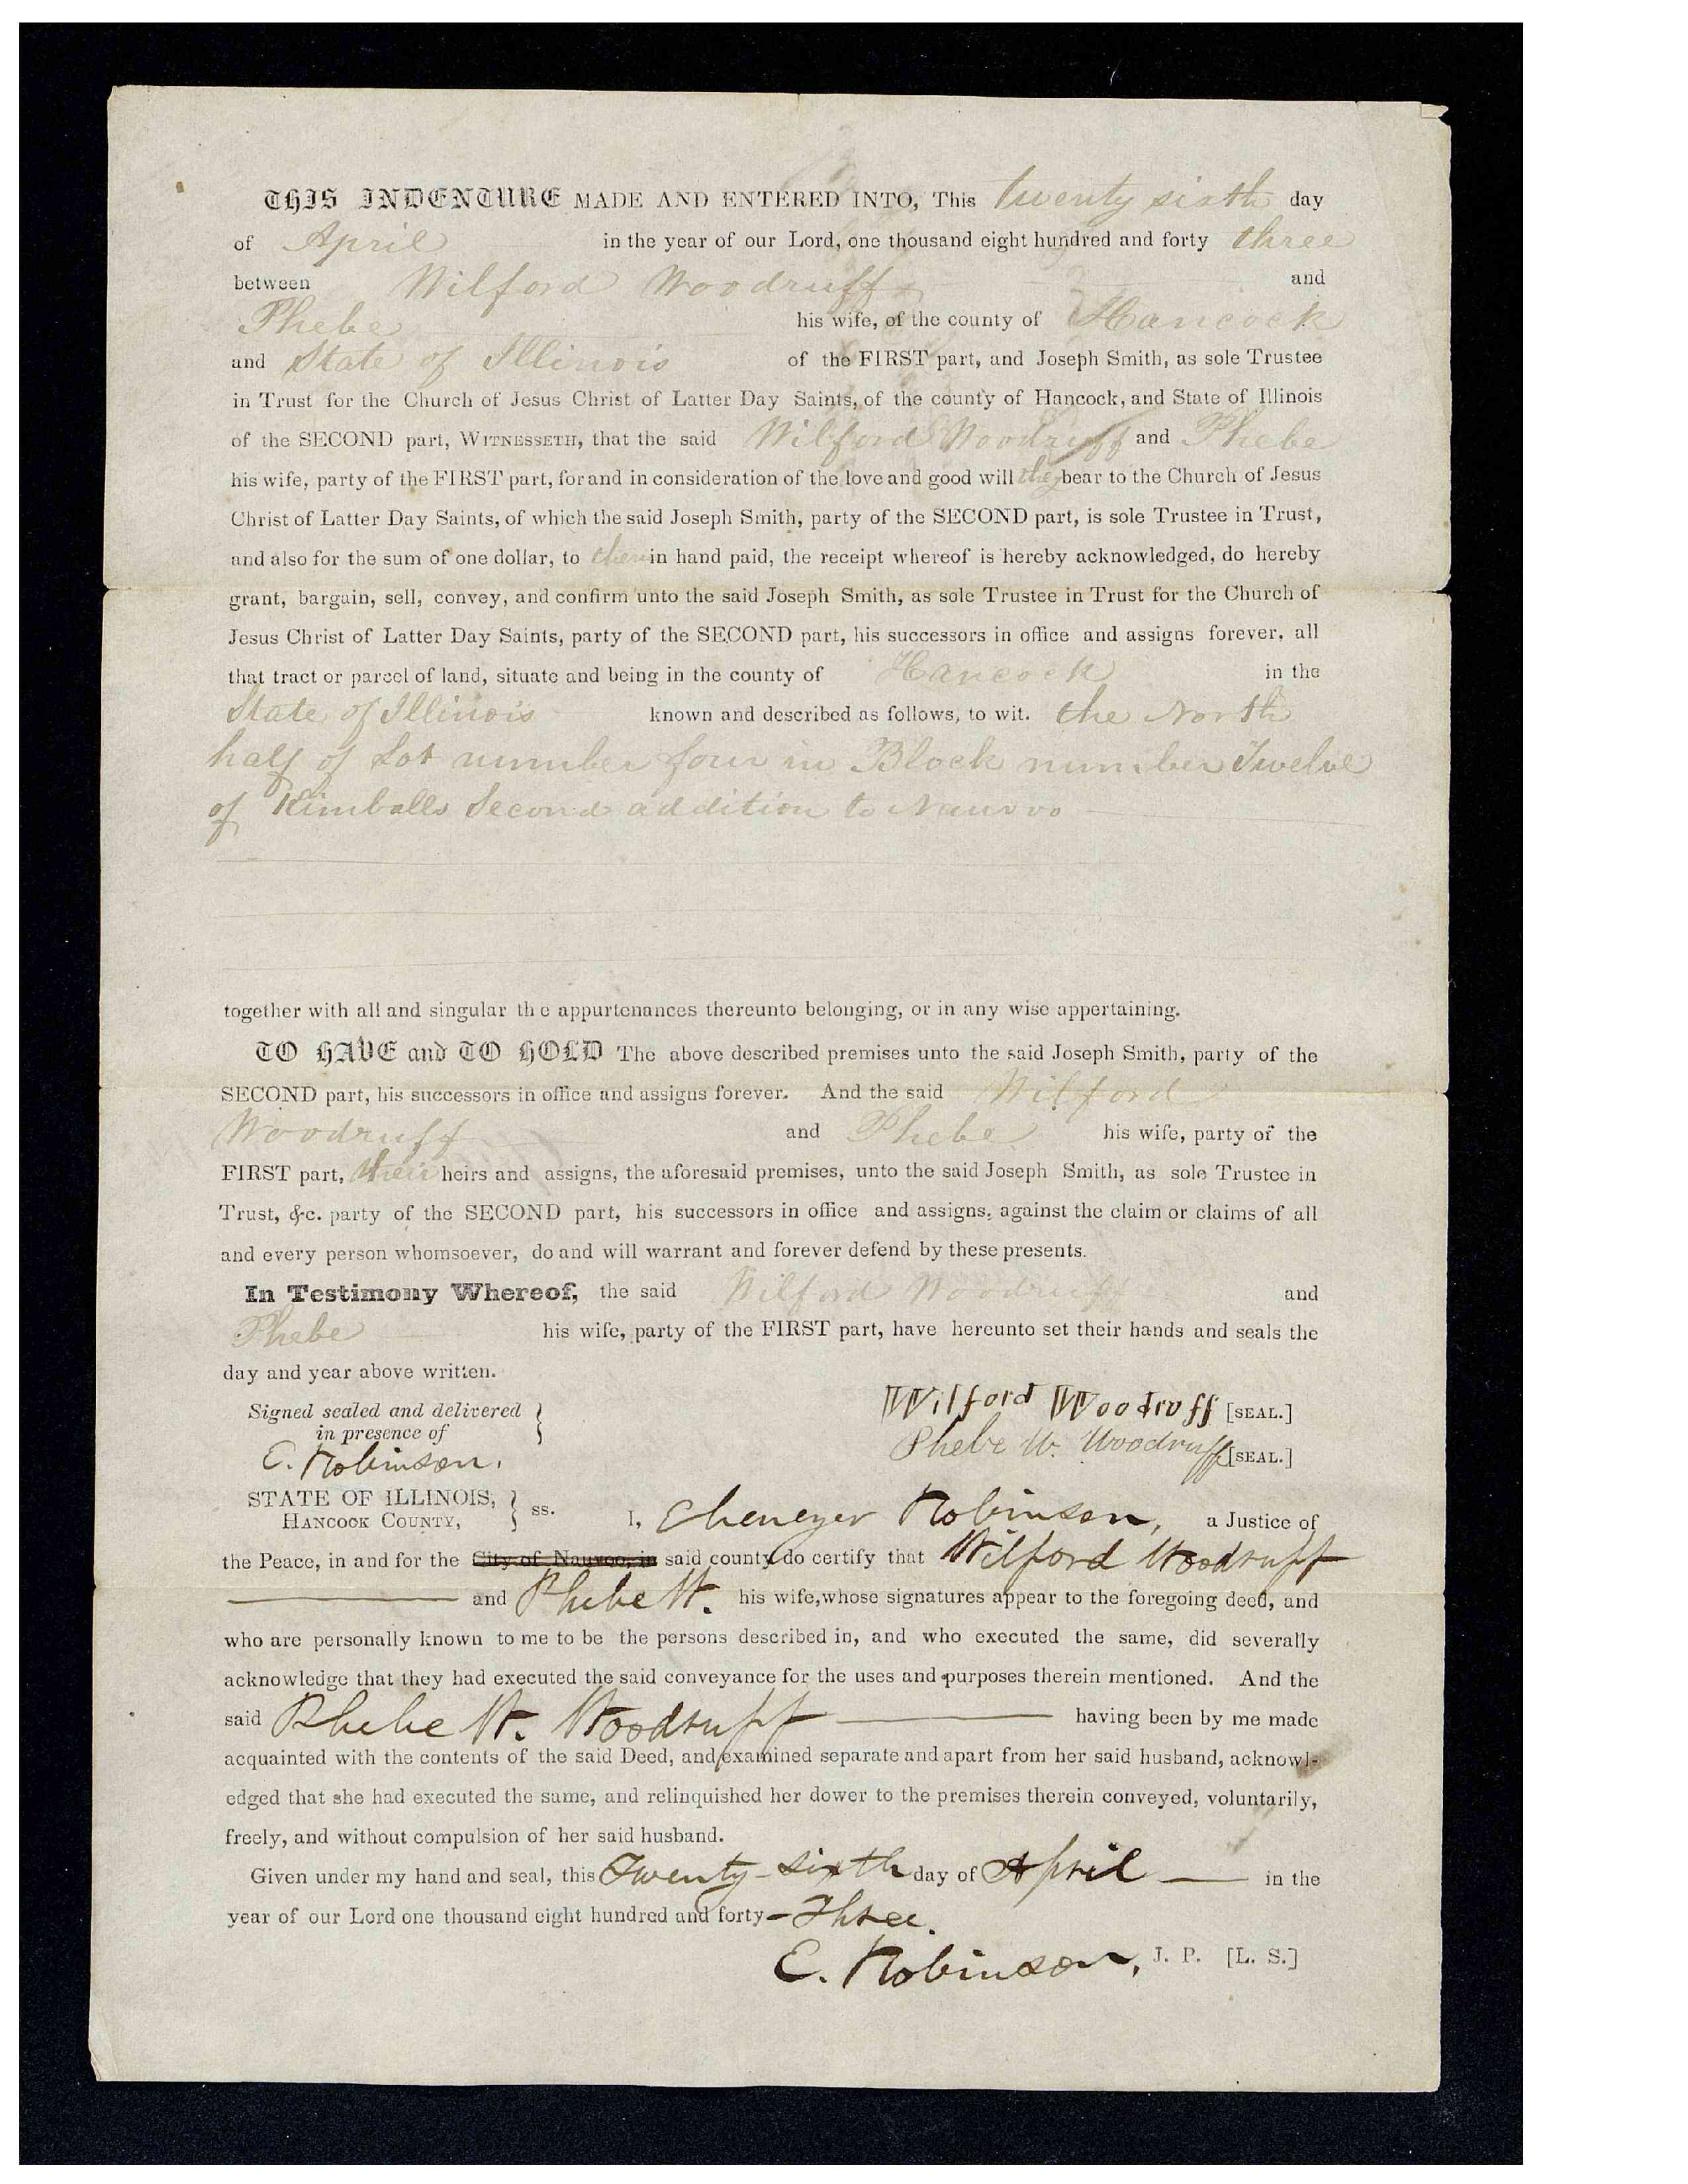 THIS INDENTURE MADE AND ENTERED INTO, This twenty sixth day
of April in the year of our Lord, one thousand eight hundred and forty three
between Wilford Woodruff and
Phebe his wife, of the county of Hancock
and State of Illinois of the FIRST part, and Joseph Smith, as sole Trustee
in Trust for the Church of Jesus Christ of Latter Day Saints, of the county of Hancock, and State of Illinois
of the SECOND part, WITNESSETH, that the said Wilford Woodruff and Phebe
his wife, party of the FIRST part, for and in consideration of the love and good will they bear to the Church of Jesus
Christ of Latter Day Saints, of which the said Joseph Smith, party of the SECOND part, is sole Trustee in Trust,
and also for the sum of one dollar, to them in hand paid, the receipt whereof is hereby acknowledged, do hereby
grant, bargain, sell, convey, and confirm unto the said Joseph Smith, as sole Trustee in Trust for the Church of
Jesus Christ of Latter Day Saints, party of the SECOND part, his successors in office and assigns forever, all
that tract or parcel of land, situate and being in the county of Hancock in the
State of Illinois known and described as follows, to wit. the North
half of Lot number four in Block number Twelve
of Kimballs Second addition to Nauvoo
together with all and singular the appurtenances thereunto belonging, or in any wise appertaining.
TO HAVE and TO HOLD The above described premises unto the said Joseph Smith, party of the
SECOND part, his successors in office and assigns forever. And the said Wilford
Woodruff and Phebe his wife, party of the
FIRST part, their heirs and assigns, the aforesaid premises, unto the said Joseph Smith, as sole Trustee in
Trust, &c. party of the SECOND part, his successors in office and assigns, against the claim or claims of all
and every person whomsoever, do and will warrant and forever defend by these presents.
In Testimony Whereof, the said Wilford Woodruff and
Phebe his wife, party of the FIRST part, have hereunto set their hands and seals the
day and year above written.
Wilford Woodruff [SEAL.]
Signed sealed and delivered
in presence of
Phebe W. Woodruff [SEAL.]
E. Robinson.
STATE OF ILLINOIS,
HANCOCK COUNTY, } ss. I, Ebenezer Robinson, a Justice of
the Peace, in and for the City of Nauvoo, in said county do certify that Wilford Woodruff
and Phebe W. his wife, whose signatures appear to the foregoing deed, and
who are personally known to me to be the persons described in, and who executed the same, did severally
acknowledge that they had executed the said conveyance for the uses and purposes therein mentioned. And the
said Phebe W. Woodruff having been by me made
acquainted with the contents of the said Deed, and examined separate and apart from her said husband, acknowl-
edged that she had executed the same, and relinquished her dower to the premises therein conveyed, voluntarily,
freely, and without compulsion of her said husband.
Given under my hand and seal, this Twenty-sixth day of April — in the
year of our Lord one thousand eight hundred and forty-Three.
E. Robinson, J. P. [L. S.]